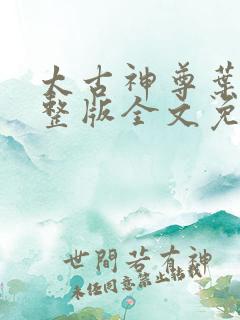 太古神尊葉
整版全文免
世間若有神
未经同意禁止转载